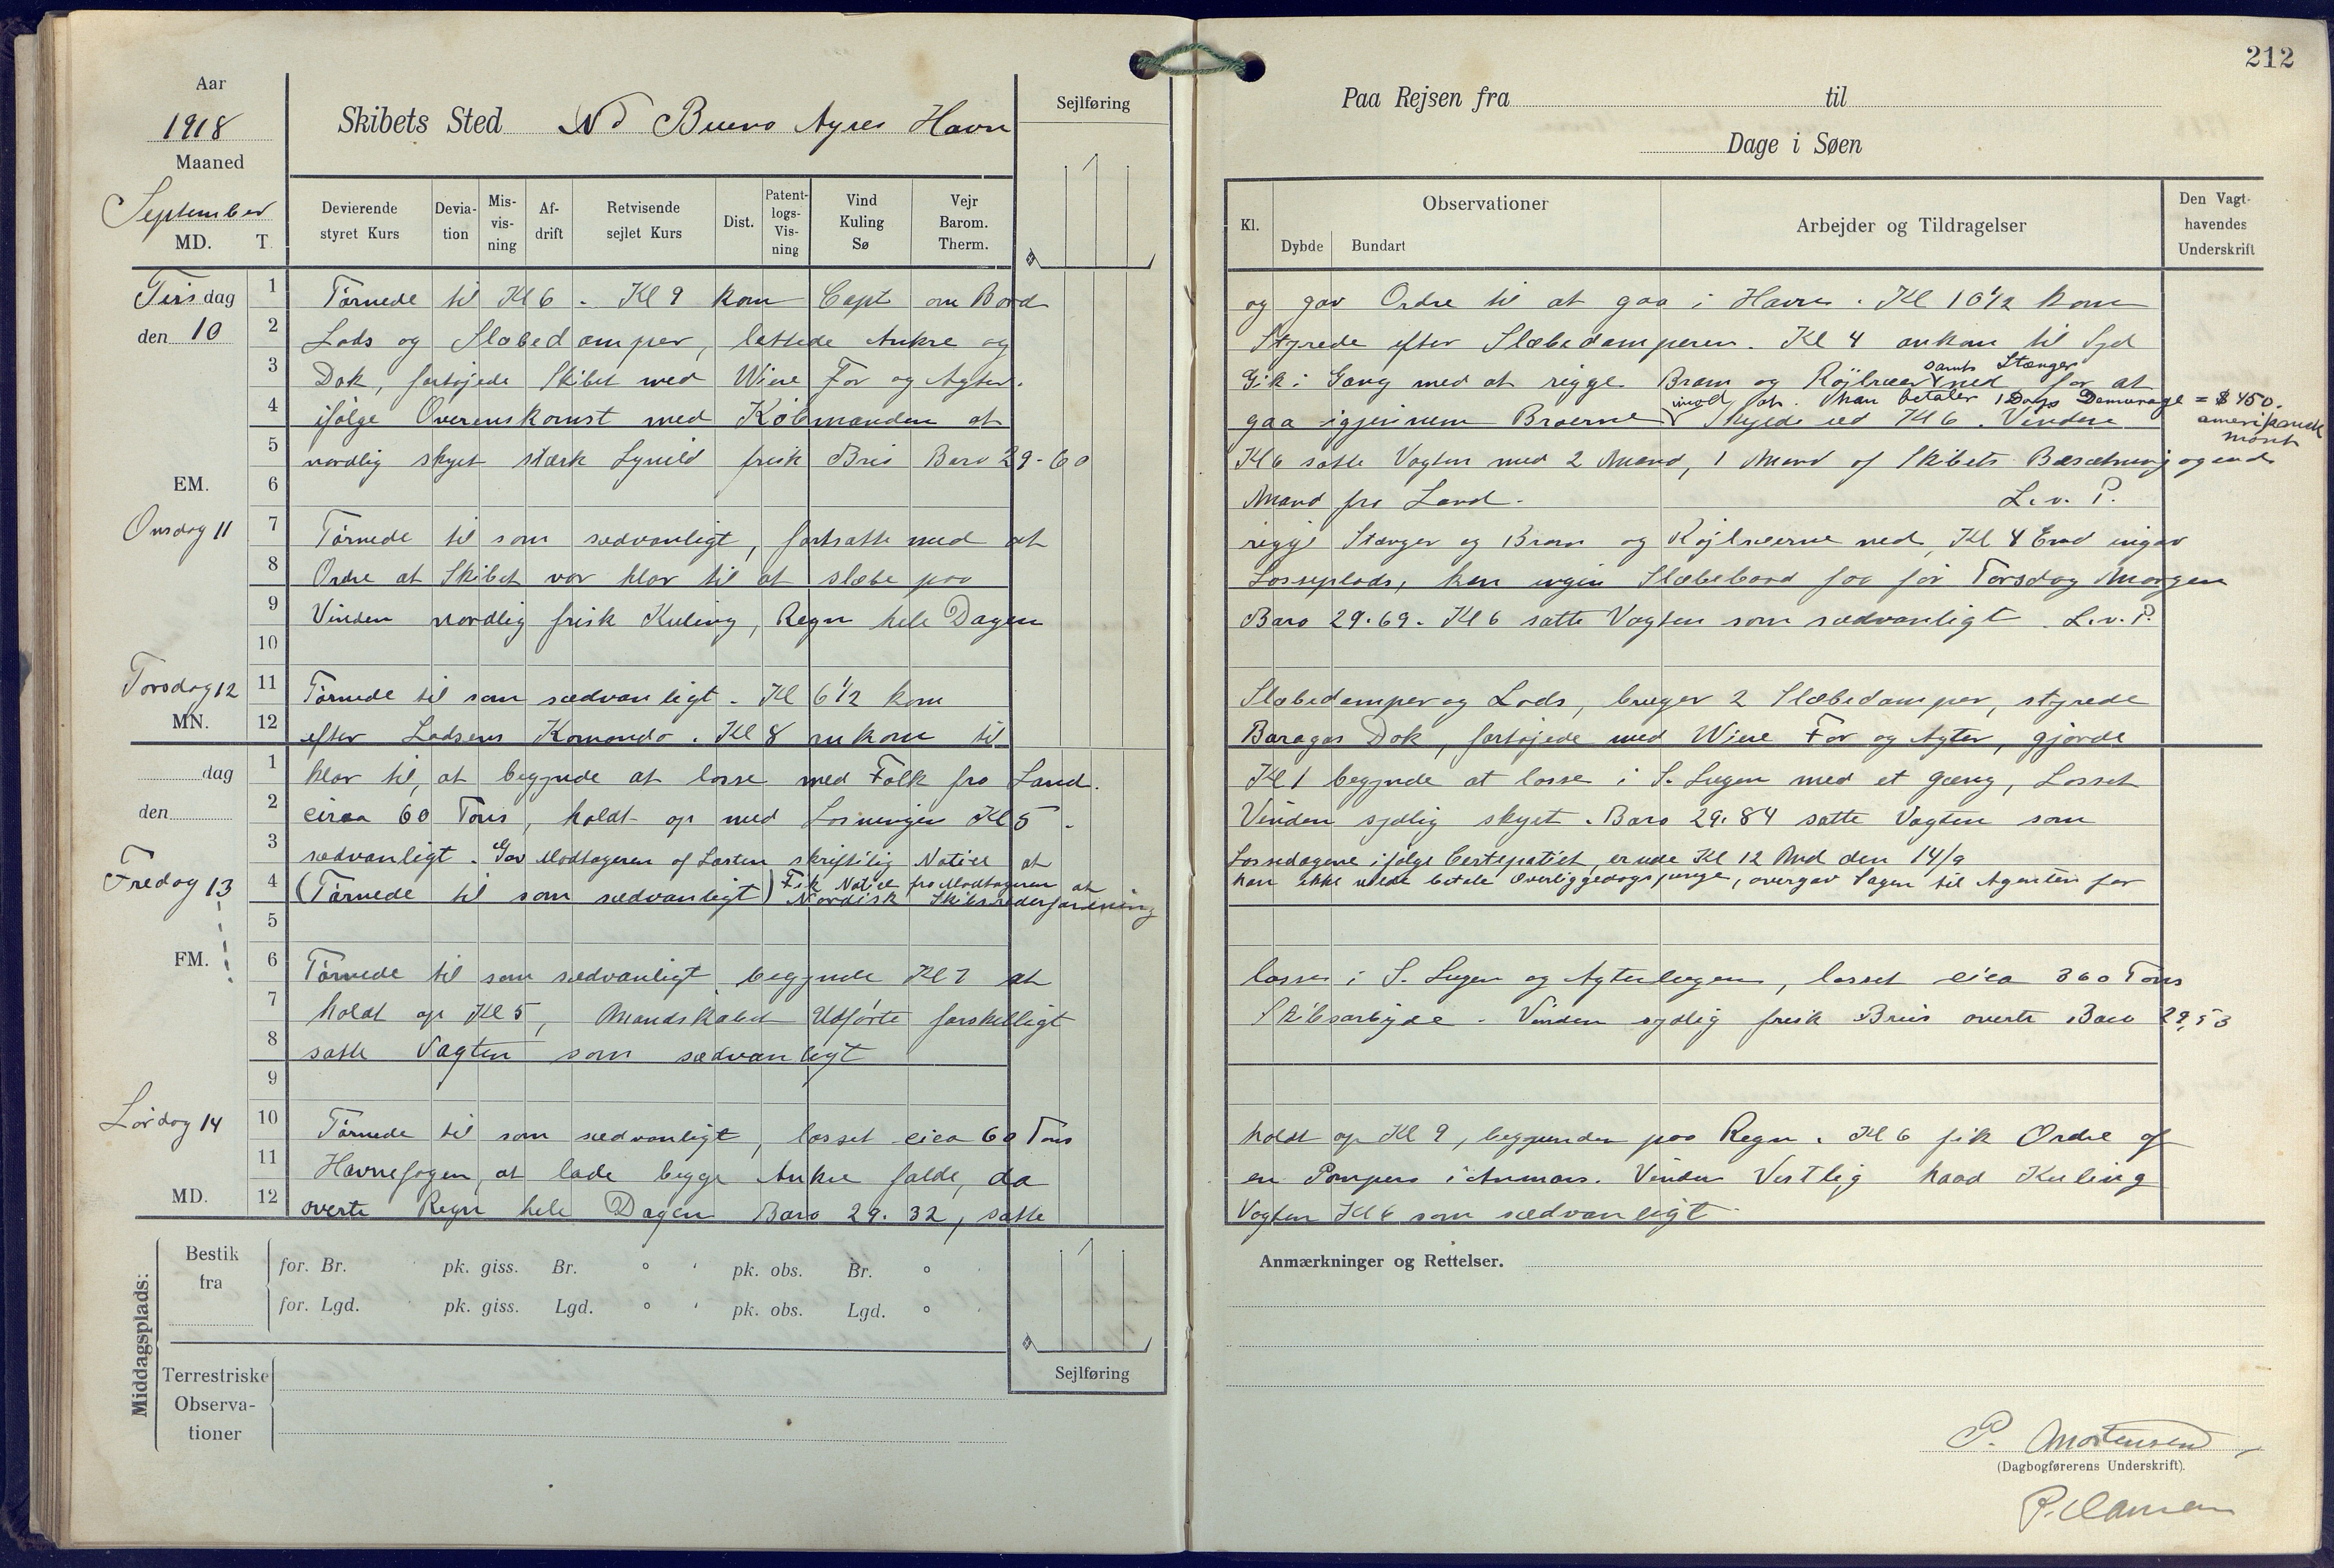 212
Aar
1918
Maaned
September
MD. T.
Skibets Sted Vd Bueno Ayres Havn
Sejlføring
Paa Rejsen fra til
Dage i Søen
Devierende styret Kurs
Devia-tion
Mis-vis-ning
Af-drift
Retvisende sejlet Kurs
Dist.
Patent-logs-Vis-ning
Vind Kuling Sø
Vejr Barom. Therm.
Kl.
Observationer
Dybde Bundart
Arbejder og Tildragelser
Den Vagt-havendes Underskrift
Tirsdag
den 10
1 Tørnede til Kl 6 . Kl 9 kom Capt om Bord og gav Ordre til at gaa i Havn . Kl 10 1/2 kom
2 Lods og Slæbedamper, lettede Ankre og Styrede efter Slæbedamperen. Kl 4 ankom til Syd
samt Stænger
3 Dok, fortøjede Skibet med Wire For og Agter. Gik i Gang med at rigge Bram og Røjlræer ned for at
imod at han betaler 1 Dags Demurage = $ 450.
amerikansk
mønt
4 ifølge Overenskomst med Købmanden at gaa igjennem Broerne Skyede ud Kl 6 . Vinden
5 nordlig skyet stærk Lynild frisk Bris Baro 29-60 Kl 6 satte Vagten med 2 Mand, 1 Mand af Skibets Besætning og end
EM.
6 Mand fra Land. L.v. P.
Onsdag 11
7 Tørnede til som sædvanligt, fortsatte med at rigge Stænger og Bram og Røjlræerne ned, Kl 4 Emd ingav
8 Ordre at Skibet var klar til at slæbe paa Losseplads, kan ingen Slæbebaad faa før Torsdag Morgen
9 Vinden nordlig frisk Kuling, Regn hele Dagen Baro 29.69. Kl 6 satte Vagten som sædvanligt . L.v.P.
10
Torsdag 12
MN.
11 Tørnede til som sædvanligt . Kl 6 1/2 kom Slæbedamper og Lods, bruger 2 Slæbedamper, styrede
12 efter Lodsens Komando . Kl 8 ankom til Baragas Dok, fortøjede med Wire For og Agter, gjorde
dag
den
1 klar til, at begynde at losse med Folk fra Land. Kl 1 begynde at losse i S. Lugen med et gæng, Losset
2 circa 60 Tons, holdt op med Losningen Kl 5 . Vinden sydlig skyet . Baro 29.84 satte Vagten som
3 sædvanligt . Gav Modtageren af Lasten skriftlig Notice at Lossedagene ifølge Certepatiet, er ude Kl 12 Md den 14/9
Fredag 13
4 (Tørnede til som sædvanligt) Fik Notice fra Modtageren at han ikke vilde betale Overliggedagspenge, overgav Sagen til Agenten for
Nordisk Skibsrederforening
5
FM.
6 Tørnede til som sædvanligt, begynde Kl 7 at losse i S. Lugen og Agterlugen, losset cica 360 Tons
7 holdt op Kl 5, Mandskabet Udførte forskelligt Skibsarbejde . Vinden sydlig frisk Bris overtr Baro 29,53
8 satte Vagten som sædvanligt
9
Lørdag 14
10 Tørnede til som sædvanligt, losset cica 60 Tons holdt op Kl 9, begrunden paa Regn . Kl 6 fik Ordre af
11 Havnefogen, at lade begge Ankre falde, da en Pompero i Anmars. Vinden Vestlig haad Kuling
MD.
12 overtr Regn hele Dagen Baro 29.32, satte Vagten Kl 6 som sædvanligt
Middagsplads:
Bestik fra
for. Br. pk. giss. Br. ° ' pk. obs. Br. ° '
for. Lgd. pk. giss. Lgd. ° ' pk. obs. Lgd. ° '
Terrestriske Observa-tioner
Sejlføring
Anmærkninger og Rettelser.
P. Mortensen
(Dagbogførerens Underskrift).